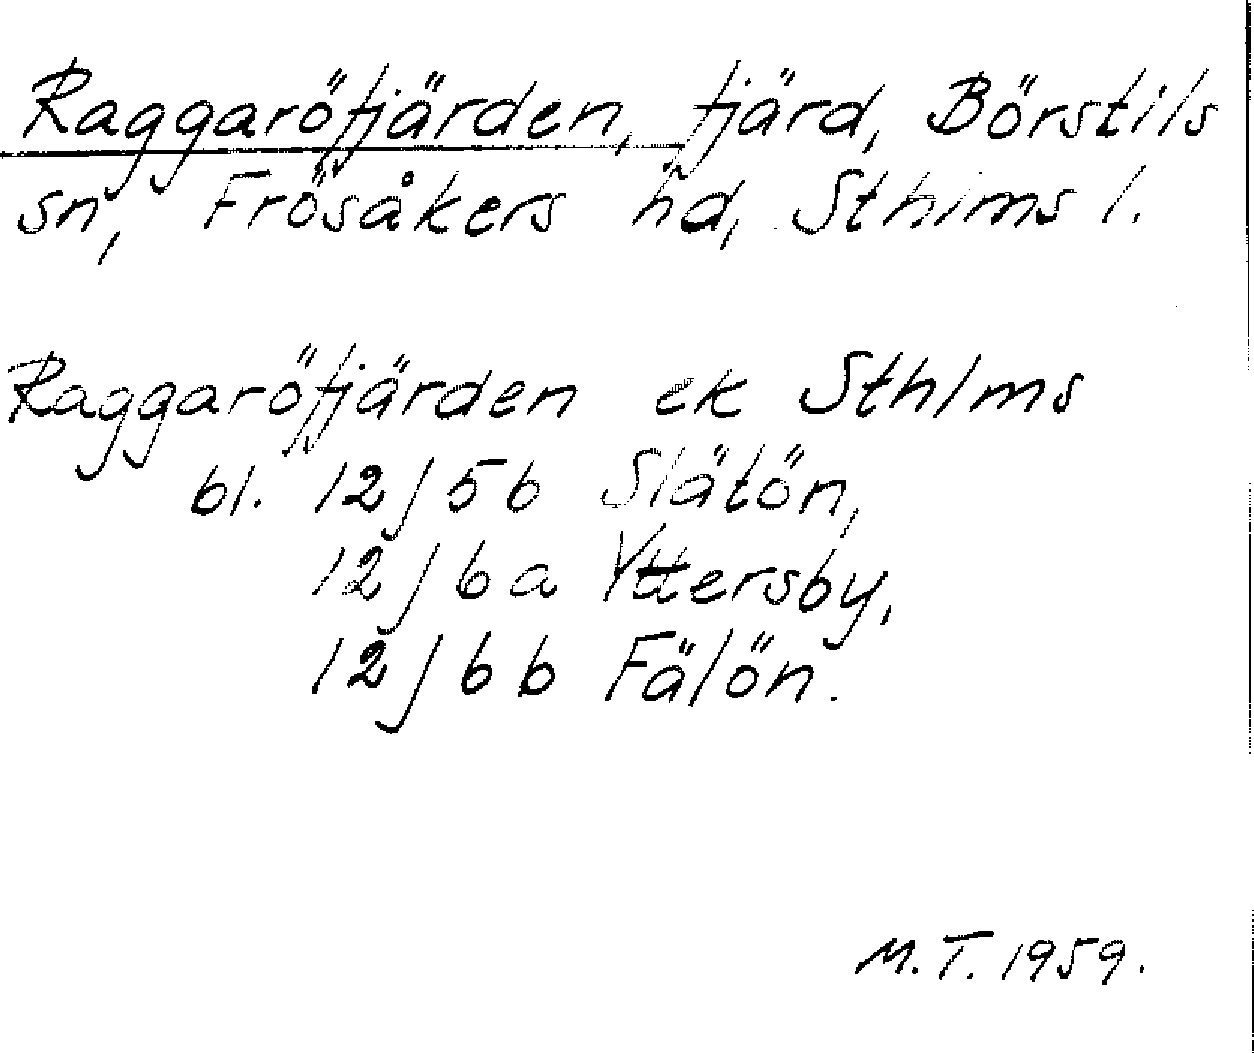 Raggaröfjärden, fjärd, Börstils
sn, Frösåkers hd, Sthlms l.
Raggaröfjärden ek Sthlms
bl. 12j5b Slätön,
12j6a Yttersby,
12j6b Fälön.
M.T. 1959.